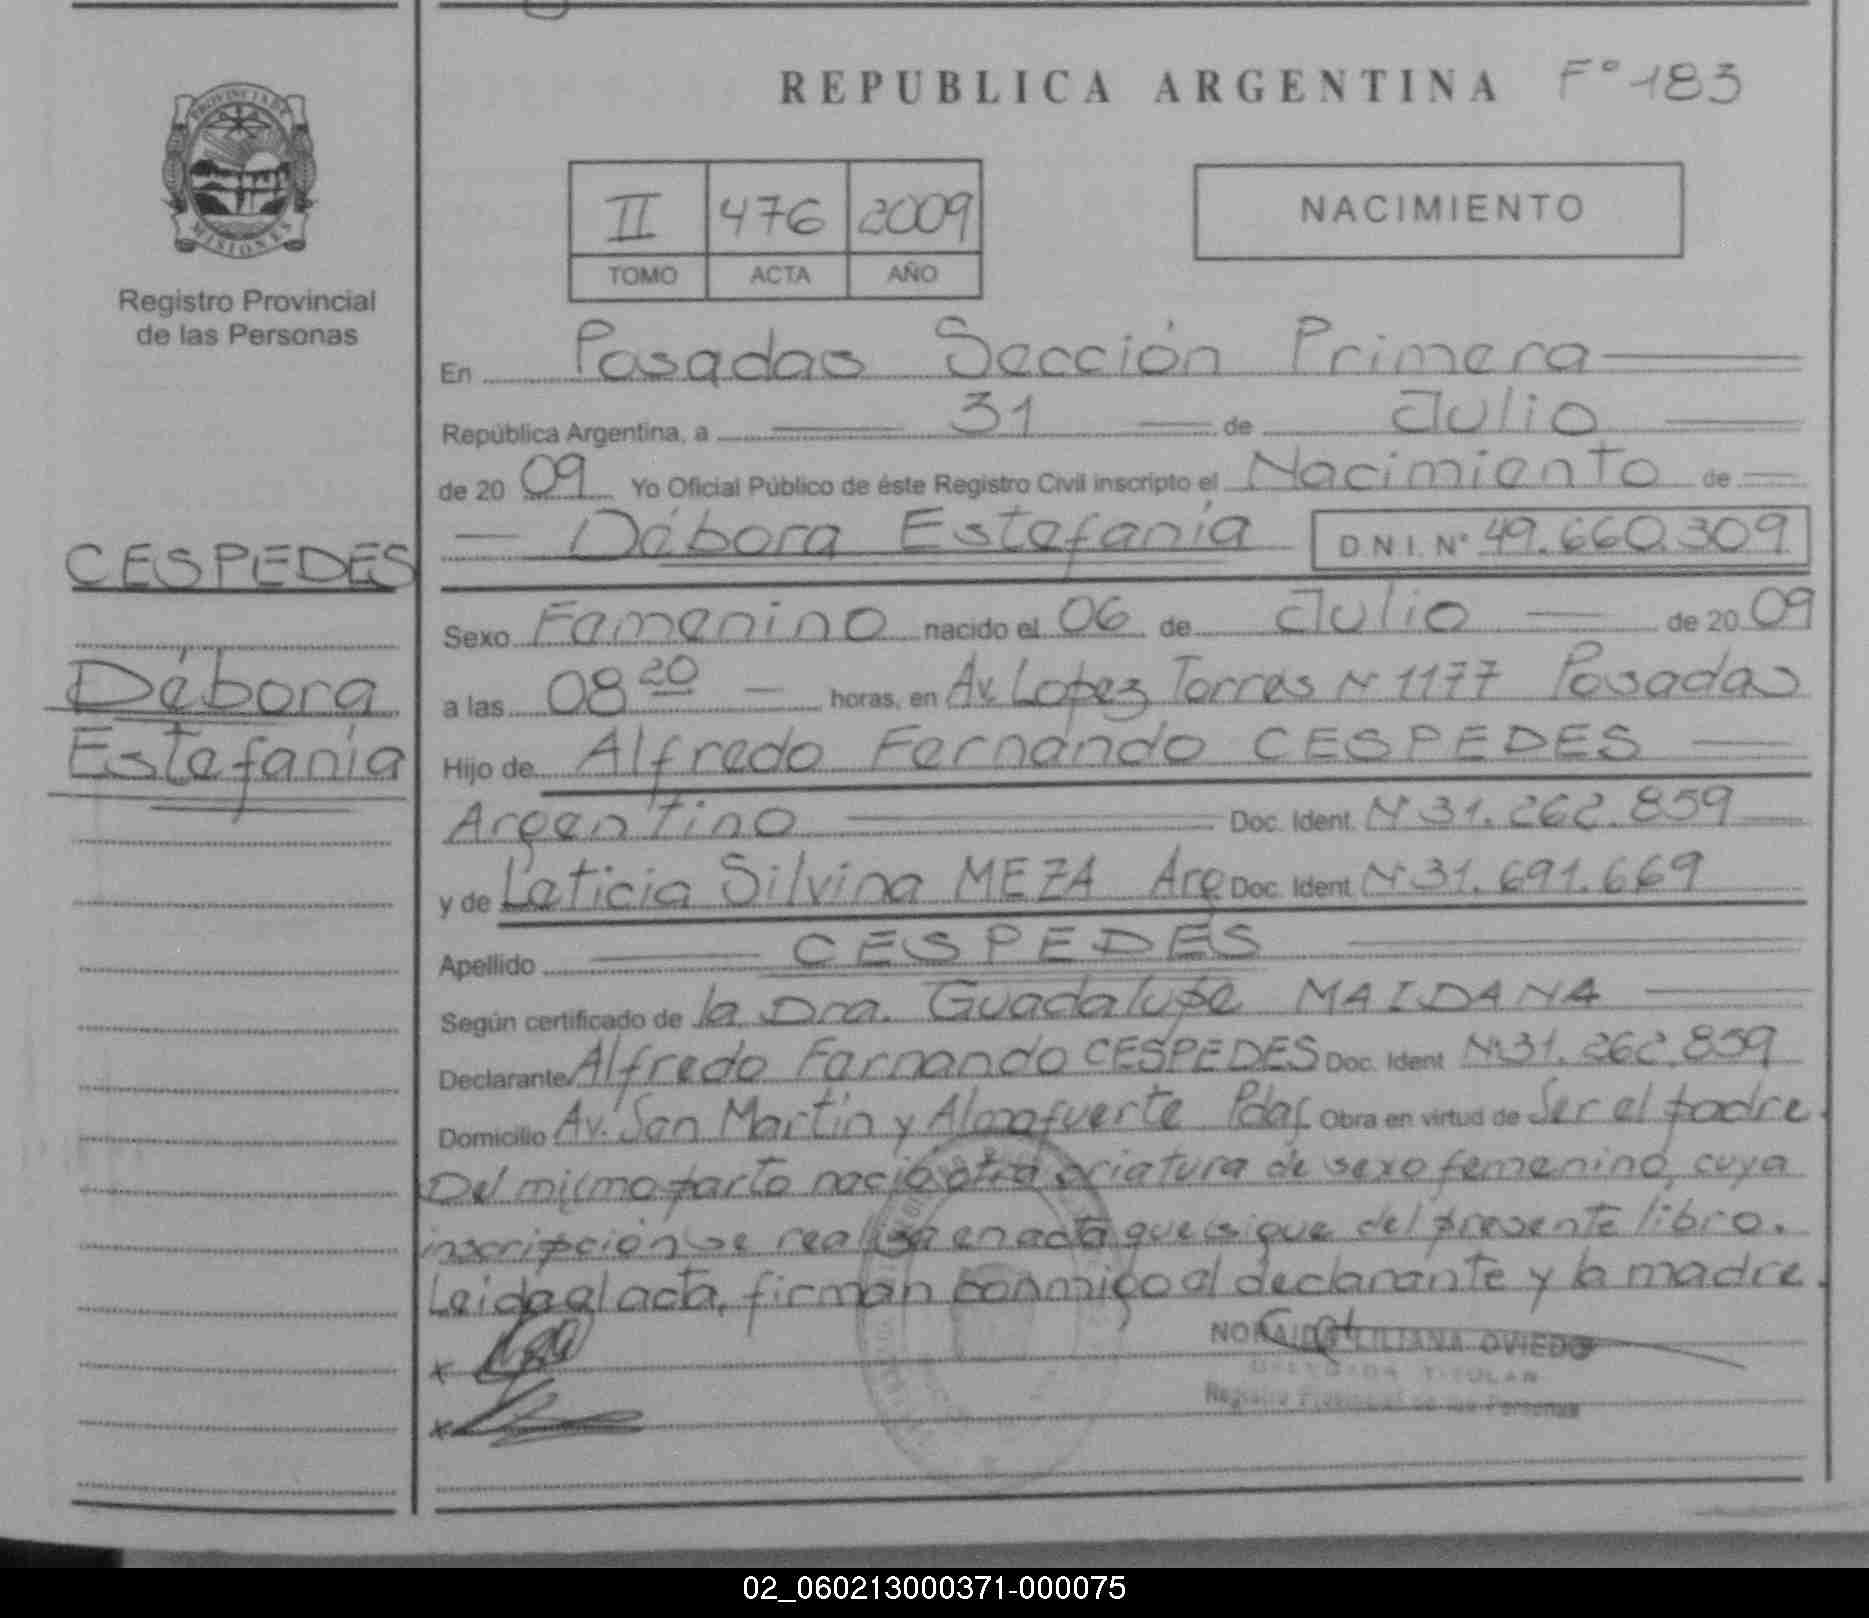 REPUBLICA ARGENTINA F° 183
PROVINCIA DE
MISIONES
Registro Provincial
de las Personas
II 476 2009
TOMO ACTA AÑO
NACIMIENTO
En Posadas Sección Primera
República Argentina, a 31 de Julio
de 20 09 Yo Oficial Público de éste Registro Civil inscripto el Nacimiento de
Débora Estefanía D.N.I. N° 49.660.309
CESPEDES
Débora
Estefanía
Sexo Femenino nacido el 06 de Julio de 20 09
a las 08 20 horas, en Av. Lopez Torres N° 1177 Posadas
Hijo de Alfredo Fernando CESPEDES
Argentino Doc. Ident. N° 31.262.859
y de Leticia Silvina MEZA Arg Doc. Ident. N° 31.691.669
Apellido CESPEDES
Según certificado de la Dra. Guadalupe MAIDANA
Declarante Alfredo Fernando CESPEDES Doc. Ident N° 31.262.859
Domicilio Av. San Martín y Almafuerte Pdas. Obra en virtud de Ser el padre.
Del mismo parto nació otra criatura de sexo femenino, cuya
inscripción se realiza en acta que sigue del presente libro.
Leida el acta, firman conmigo el declarante y la madre.
NORAIDA LILIANA OVIEDO
DELEGADA TITULAR
Registro Provincial de las Personas
02_060213000371-000075